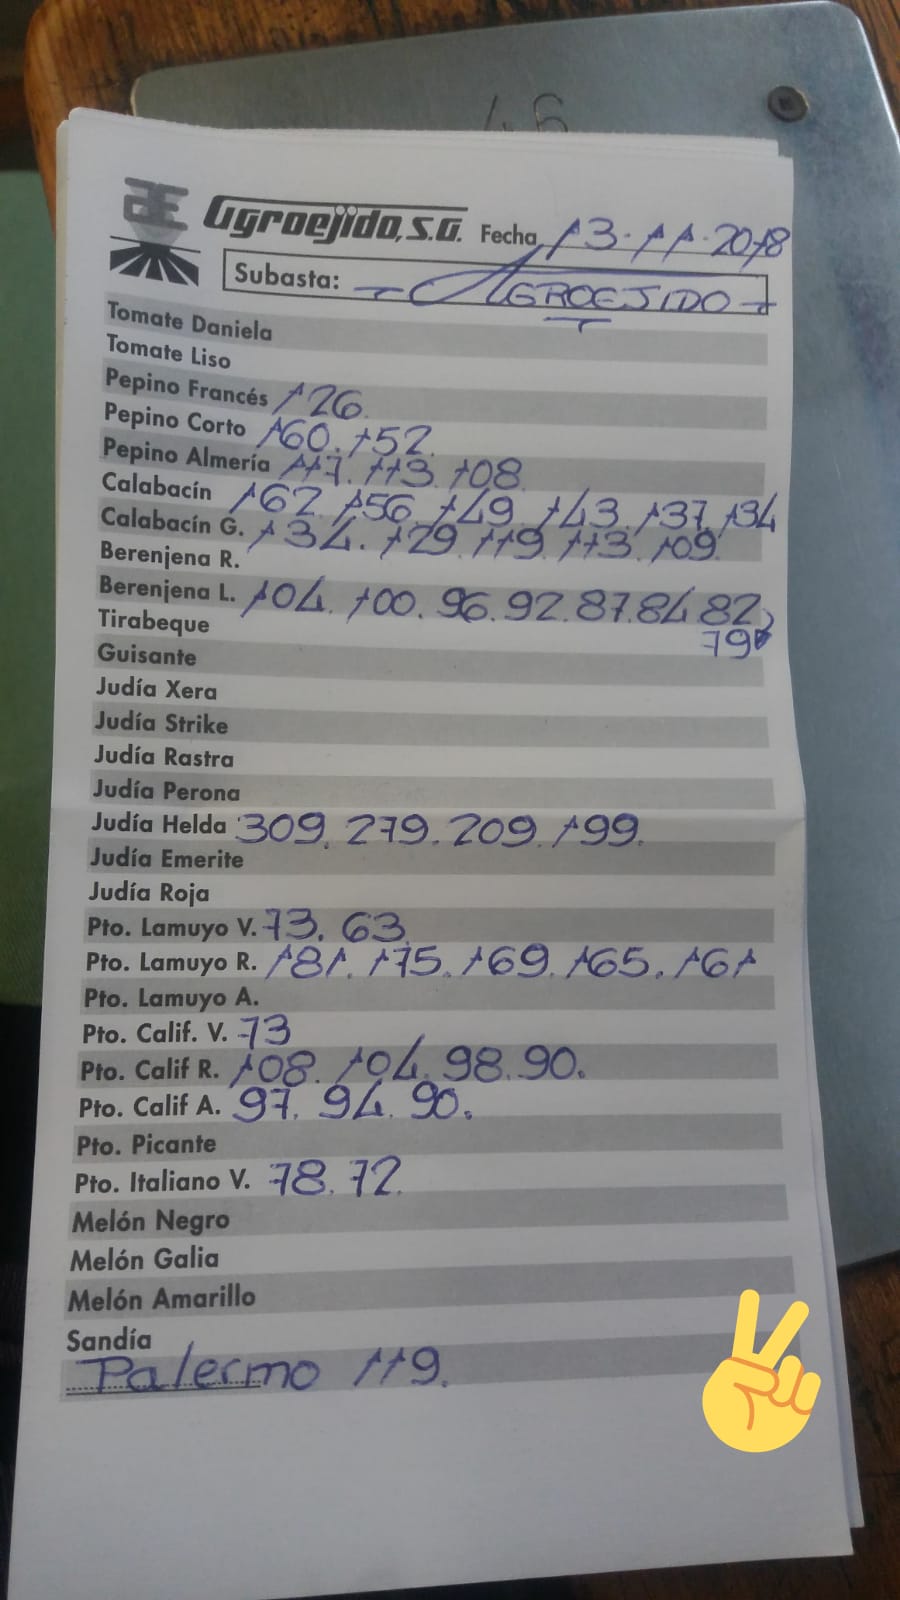 46
Agroejido, S.A. Fecha 13-11-2018
Subasta: AGROEJIDO
Tomate Daniela
Tomate Liso
Pepino Francés 126.
Pepino Corto 160. 152.
Pepino Almería 117. 113. 108.
Calabacín 162. 156. 149. 143. 137. 134
Calabacín G. 134. 129. 119. 113. 109.
Berenjena R.
Berenjena L. 104. 100. 96. 92. 87. 84. 82
79
Tirabeque
Guisante
Judía Xera
Judía Strike
Judía Rastra
Judía Perona
Judía Helda 309. 279. 209. 199.
Judía Emerite
Judía Roja
Pto. Lamuyo V. 73. 63.
Pto. Lamuyo R. 181. 175. 169. 165. 161
Pto. Lamuyo A.
Pto. Calif. V. 73
Pto. Calif R. 108. 104. 98. 90.
Pto. Calif A. 97. 94. 90.
Pto. Picante
Pto. Italiano V. 78. 72.
Melón Negro
Melón Galia
Melón Amarillo
Sandía
Palermo 119.